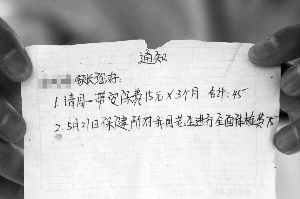 通知
家长您好:
1. 请周一带安保费15元×3个月 合计:45
2. 5月27日保健所对我园老生进行全面体检费75